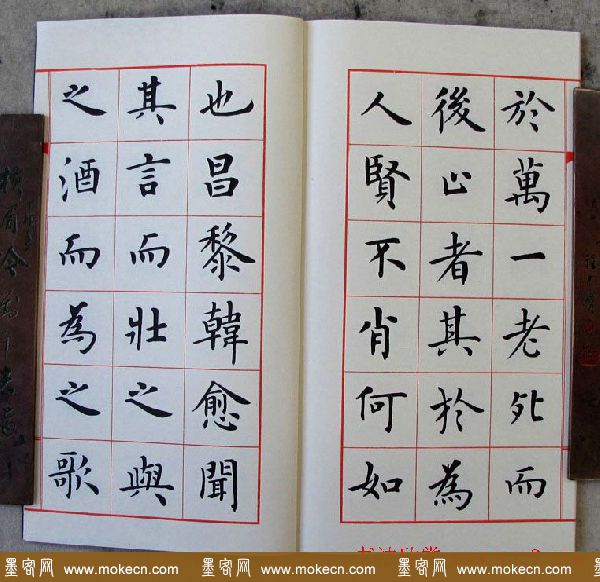 於萬一老死而
後止者其於為
人賢不肖何如
也昌黎韓愈聞
其言而壯之與
之酒而為之歌
墨客网 www.mokecn.com 墨客网 www.mokecn.com 墨客网 www.mokecn.com